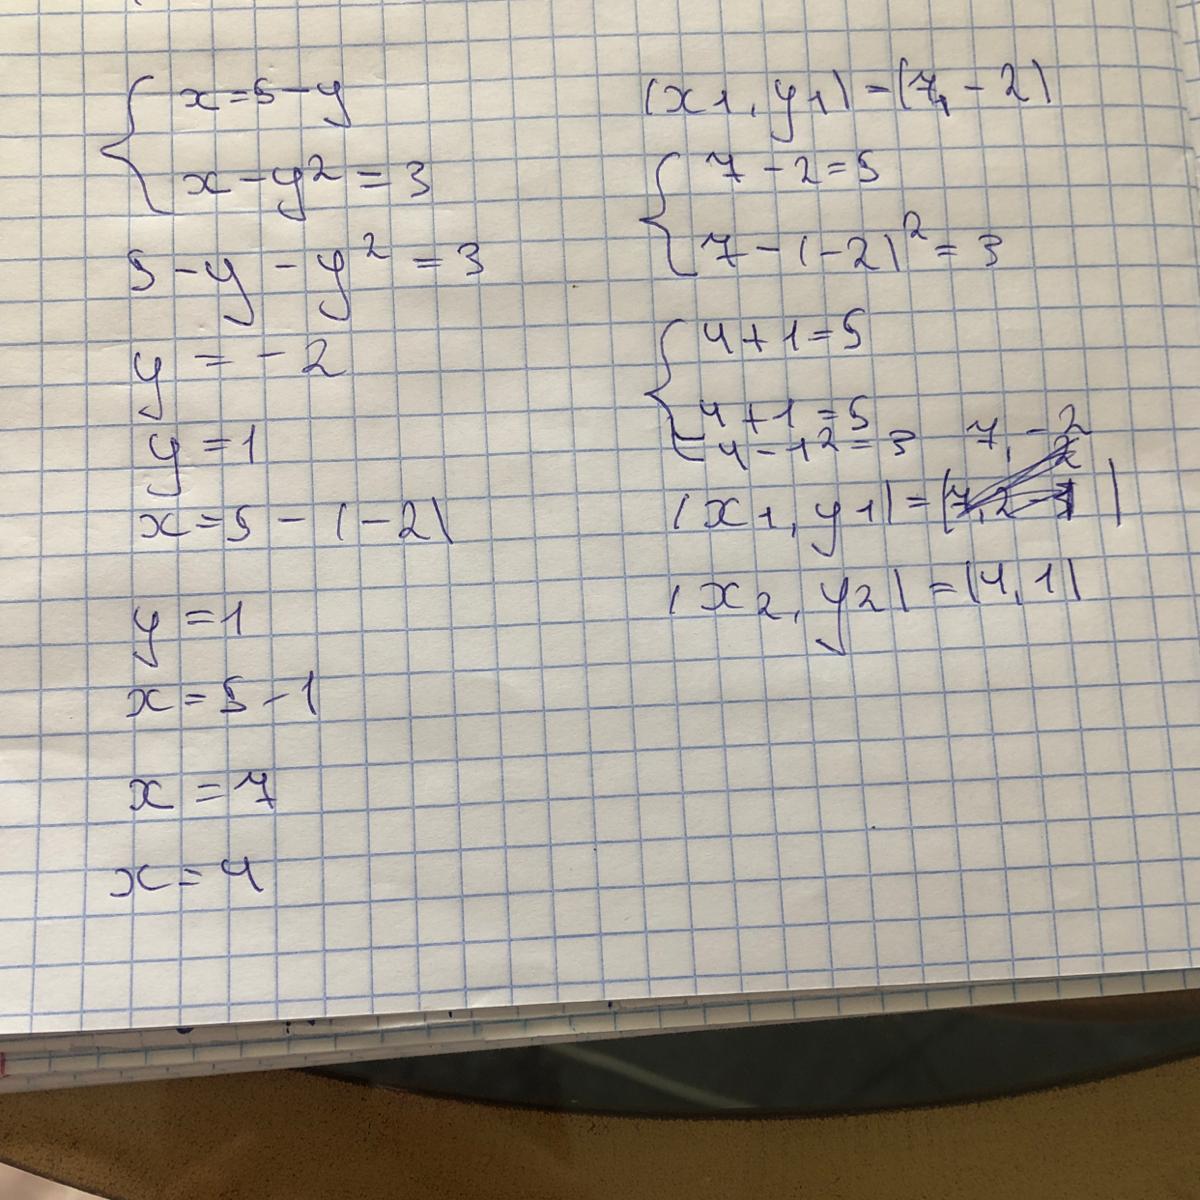 x=5-y
x-y²=3
5-y-y²=3
y=-2
y=1
x=5-(-2)
y=1
x=5-1
x=7
x=4
(x1, y1)=(7,-2)
7-2=5
7-(-2)²=3
4+1=5
4+1=5
4-1²=3
7,-2
(x1, y1)=( )
(x2, y2)=(4,1)